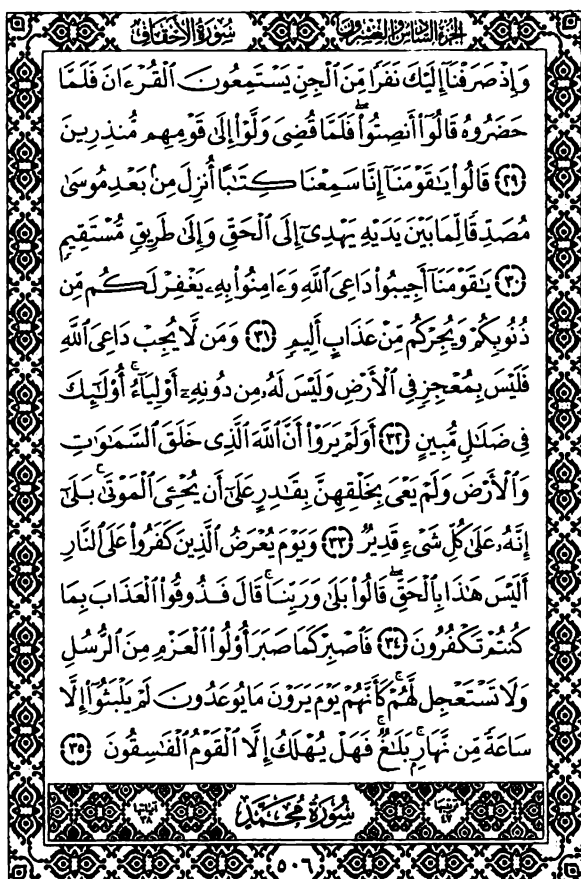 الجزء السادس والعشرون سورة الأحقاف
وَإِذْ صَرَفْنَآ إِلَيْكَ نَفَرًا مِّنَ ٱلْجِنِّ يَسْتَمِعُونَ ٱلْقُرْءَانَ فَلَمَّا
حَضَرُوهُ قَالُوٓا۟ أَنصِتُوا۟ ۖ فَلَمَّا قُضِىَ وَلَّوْا۟ إِلَىٰ قَوْمِهِم مُّنذِرِينَ
﴿٢٩﴾ قَالُوا۟ يَـٰقَوْمَنَآ إِنَّا سَمِعْنَا كِتَـٰبًا أُنزِلَ مِنۢ بَعْدِ مُوسَىٰ
مُصَدِّقًا لِّمَا بَيْنَ يَدَيْهِ يَهْدِىٓ إِلَى ٱلْحَقِّ وَإِلَىٰ طَرِيقٍ مُّسْتَقِيمٍ
﴿٣٠﴾ يَـٰقَوْمَنَآ أَجِيبُوا۟ دَاعِىَ ٱللَّهِ وَءَامِنُوا۟ بِهِۦ يَغْفِرْ لَكُم مِّن
ذُنُوبِكُمْ وَيُجِرْكُم مِّنْ عَذَابٍ أَلِيمٍ ﴿٣١﴾ وَمَن لَّا يُجِبْ دَاعِىَ ٱللَّهِ
فَلَيْسَ بِمُعْجِزٍ فِى ٱلْأَرْضِ وَلَيْسَ لَهُۥ مِن دُونِهِۦٓ أَوْلِيَآءُ ۚ أُو۟لَـٰٓئِكَ
فِى ضَلَـٰلٍ مُّبِينٍ ﴿٣٢﴾ أَوَلَمْ يَرَوْا۟ أَنَّ ٱللَّهَ ٱلَّذِى خَلَقَ ٱلسَّمَـٰوَٰتِ
وَٱلْأَرْضَ وَلَمْ يَعْىَ بِخَلْقِهِنَّ بِقَـٰدِرٍ عَلَىٰٓ أَن يُحْـِۧىَ ٱلْمَوْتَىٰ ۚ بَلَىٰٓ
إِنَّهُۥ عَلَىٰ كُلِّ شَىْءٍ قَدِيرٌ ﴿٣٣﴾ وَيَوْمَ يُعْرَضُ ٱلَّذِينَ كَفَرُوا۟ عَلَى ٱلنَّارِ
أَلَيْسَ هَـٰذَا بِٱلْحَقِّ ۖ قَالُوا۟ بَلَىٰ وَرَبِّنَا ۚ قَالَ فَذُوقُوا۟ ٱلْعَذَابَ بِمَا
كُنتُمْ تَكْفُرُونَ ﴿٣٤﴾ فَٱصْبِرْ كَمَا صَبَرَ أُو۟لُوا۟ ٱلْعَزْمِ مِنَ ٱلرُّسُلِ
وَلَا تَسْتَعْجِل لَّهُمْ ۚ كَأَنَّهُمْ يَوْمَ يَرَوْنَ مَا يُوعَدُونَ لَمْ يَلْبَثُوٓا۟ إِلَّا
سَاعَةً مِّن نَّهَارٍۭ ۚ بَلَـٰغٌ ۚ فَهَلْ يُهْلَكُ إِلَّا ٱلْقَوْمُ ٱلْفَـٰسِقُونَ ﴿٣٥﴾
سورة محمد
٥٠٦